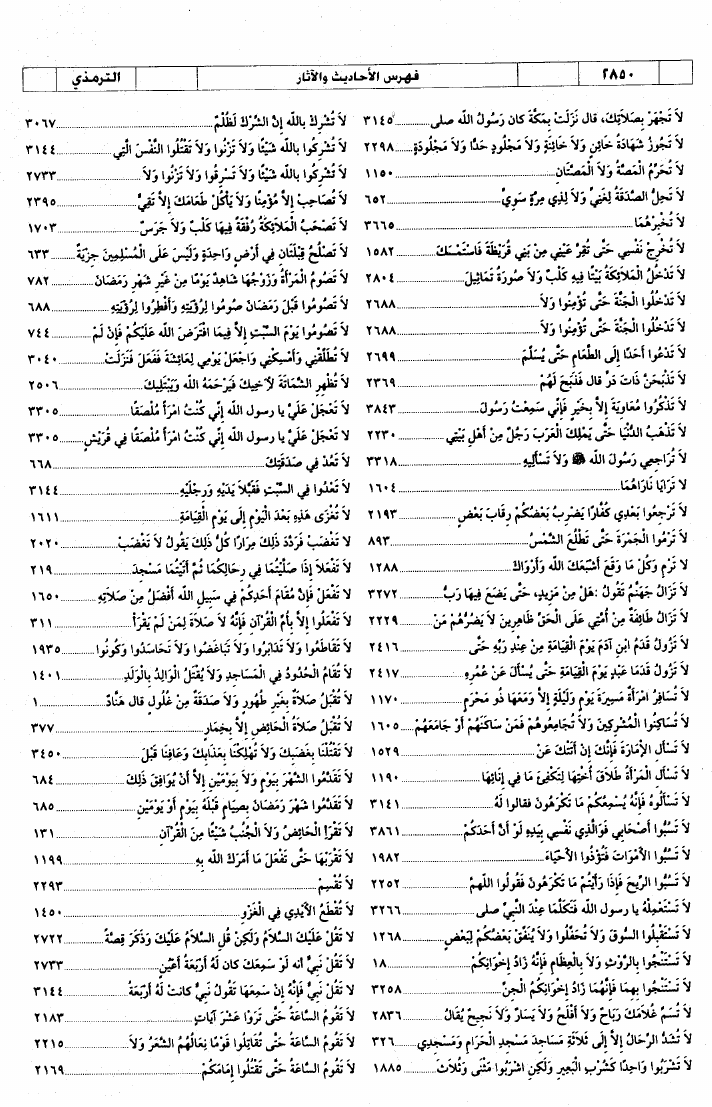 ٢٨٥٠ فهرس الأحاديث والآثار الترمذي
لاَ تَجْهَرْ بِصَلاَتِكَ، قال نَزَلَتْ بِمَكَّةَ كان رَسُولُ الله صلى ٣١٤٥
لاَ تَجُوزُ شَهَادَةُ خائِنٍ وَلاَ خَائِنَةٍ وَلاَ مَجْلُودٍ حَدًّا وَلاَ مَجْلُودَةٍ ٢٢٩٨
لاَ تُحَرِّمُ المَصَّةُ وَلاَ المَصَّتَانِ ١١٥٠
لاَ تَحِلُّ الصَّدَقَةُ لِغَنِيٍّ وَلاَ لِذِي مِرَّةٍ سَوِيٍّ ٦٥٢
لاَ تُخْبِرْهُمَا ٣٦٦٥
لاَ تُخْرِجْ نَفْسِي حَتَّى تُقِرَّ عَيْنِي مِنْ بَنِي قُرَيْظَةَ فَاسْتَمْسَكَ ١٥٨٢
لاَ تَدْخُلُ المَلاَئِكَةُ بَيْتًا فِيهِ كَلْبٌ وَلاَ صُورَةُ تَمَاثِيلَ ٢٨٠٤
لاَ تَدْخُلُوا الْجَنَّةَ حَتَّى تُؤْمِنُوا وَلاَ ٢٦٨٨
لاَ تَدْخُلُوا الْجَنَّةَ حَتَّى تُؤْمِنُوا وَلاَ ٢٦٨٨
لاَ تَدْعُوا أَحَدًا إِلَى الطَّعَامِ حَتَّى يُسَلِّمَ ٢٦٩٩
لاَ تَذْبَحَنَّ ذَاتَ دَرٍّ قال فَذَبَحَ لَهُمْ ٢٣٦٩
لاَ تَذْكُرُوا مُعَاوِيَةَ إِلاَّ بِخَيْرٍ فَإِنِّي سَمِعْتُ رَسُولَ ٣٨٤٣
لاَ تَذْهَبُ الدُّنْيَا حَتَّى يَمْلِكَ الْعَرَبَ رَجُلٌ مِنْ أَهْلِ بَيْتِي ٢٢٣٠
لاَ تُرَاجِعِي رَسُولَ الله ﷺ وَلاَ تَسْأَلِيهِ ٣٣١٨
لا تَرَايَا نَارَاهُمَا ١٦٠٤
لاَ تَرْجِعُوا بَعْدِي كُفَّارًا يَضْرِبُ بَعْضُكُمْ رِقَابَ بَعْضٍ ٢١٩٣
لاَ تَرْمُوا الْجَمْرَةَ حَتَّى تَطْلُعَ الشَّمْسُ ٨٩٣
لاَ تَرْمِ وَكُلْ مَا وَقَعَ أَشْبَعَكَ الله وَأَرْوَاكَ ١٢٨٨
لاَ تَزَالُ جَهَنَّمُ تَقُولُ: هَلْ مِنْ مَزِيدٍ، حَتَّى يَضَعَ فِيهَا رَبُّ ٣٢٧٢
لاَ تَزَالُ طَائِفَةٌ مِنْ أُمَّتِي عَلَى الْحَقِّ ظَاهِرِينَ لاَ يَضُرُّهُمْ مَنْ ٢٢٢٩
لاَ تَزُولُ قَدَمُ ابْنِ آدَمَ يَوْمَ الْقِيَامَةِ مِنْ عِنْدِ رَبِّهِ حَتَّى ٢٤١٦
لاَ تَزُولُ قَدَمَا عَبْدٍ يَوْمَ الْقِيَامَةِ حَتَّى يُسْأَلَ عَنْ عُمُرِهِ ٢٤١٧
لاَ تُسَافِرُ امْرَأَةٌ مَسِيرَةَ يَوْمٍ وَلَيْلَةٍ إِلاَّ وَمَعَهَا ذُو مَحْرَمٍ ١١٧٠
لاَ تُسَاكِنُوا الْمُشْرِكِينَ وَلاَ تُجَامِعُوهُمْ فَمَنْ سَاكَنَهُمْ أَوْ جَامَعَهُمْ ١٦٠٥
لاَ تَسْأَلِ الإِمَارَةَ فَإِنَّكَ إِنْ أَتَتْكَ عَنْ ١٥٢٩
لاَ تَسْأَلِ الْمَرْأَةُ طَلاَقَ أُخْتِهَا لِتَكْفِئَ مَا فِي إِنَائِهَا ١١٩٠
لاَ تَسْأَلُوهُ فَإِنَّهُ يُسْمِعُكُمْ مَا تَكْرَهُونَ فقالوا لَهُ ٣١٤١
لاَ تَسُبُّوا أَصْحَابِي فَوَالَّذِي نَفْسِي بِيَدِهِ لَوْ أَنَّ أَحَدَكُمْ ٣٨٦١
لاَ تَسُبُّوا الأَمْوَاتَ فَتُؤْذُوا الأَحْيَاءَ ١٩٨٢
لاَ تَسُبُّوا الرِّيحَ فَإِذَا رَأَيْتُمْ مَا تَكْرَهُونَ فَقُولُوا اللهمَّ ٢٢٥٢
لاَ تَسْتَعْمِلْهُ يا رسول الله فَتَكَلَّمَا عِنْدَ النَّبِيِّ صلى ٣٢٦٦
لاَ تَسْتَقْبِلُوا السُّوقَ وَلاَ تُحَفِّلُوا وَلاَ يُنَفِّقْ بَعْضُكُمْ لِبَعْضٍ ١٢٦٨
لاَ تَسْتَنْجُوا بِالرَّوْثِ وَلاَ بِالْعِظَامِ فَإِنَّهُ زَادُ إِخْوَانِكُمْ ١٨
لاَ تَسْتَنْجُوا بِهِمَا فَإِنَّهُمَا زَادُ إِخْوَانِكُمُ الْجِنِّ ٣٢٥٨
لاَ تُسَمِّ غُلاَمَكَ رَبَاحٌ وَلاَ أَفْلَحُ وَلاَ يَسَارٌ وَلاَ نَجِيحٌ يُقَالُ ٢٨٣٦
لاَ تُشَدُّ الرِّحَالُ إِلاَّ إِلَى ثَلاَثَةِ مَسَاجِدَ مَسْجِدِ الْحَرَامِ وَمَسْجِدِي ٣٢٦
لاَ تَشْرَبُوا وَاحِدًا كَشُرْبِ الْبَعِيرِ وَلَكِنِ اشْرَبُوا مَثْنَى وَثُلاَثَ ١٨٨٥
لاَ تُشْرِكْ بالله إِنَّ الشِّرْكَ لَظُلْمٌ ٣٠٦٧
لاَ تُشْرِكُوا بالله شَيْئًا وَلاَ تَزْنُوا وَلاَ تَقْتُلُوا النَّفْسَ الَّتِي ٣١٤٤
لاَ تُشْرِكُوا بالله شَيْئًا وَلاَ تَسْرِقُوا وَلاَ تَزْنُوا وَلاَ ٢٧٣٣
لاَ تُصَاحِبْ إِلاَّ مُؤْمِنًا وَلاَ يَأْكُلْ طَعَامَكَ إِلاَّ تَقِيٌّ ٢٣٩٥
لاَ تَصْحَبُ الْمَلاَئِكَةُ رُفْقَةً فِيهَا كَلْبٌ وَلاَ جَرَسٌ ١٧٠٣
لاَ تَصْلُحُ قِبْلَتَانِ فِي أَرْضٍ وَاحِدَةٍ وَلَيْسَ عَلَى الْمُسْلِمِينَ جِزْيَةٌ ٦٣٣
لاَ تَصُومُ الْمَرْأَةُ وَزَوْجُهَا شَاهِدٌ يَوْمًا مِنْ غَيْرِ شَهْرِ رَمَضَانَ ٧٨٢
لاَ تَصُومُوا قَبْلَ رَمَضَانَ صُومُوا لِرُؤْيَتِهِ وَأَفْطِرُوا لِرُؤْيَتِهِ ٦٨٨
لاَ تَصُومُوا يَوْمَ السَّبْتِ إِلاَّ فِيمَا افْتَرَضَ الله عَلَيْكُمْ فَإِنْ لَمْ ٧٤٤
لاَ تُطَلِّقْنِي وَأَمْسِكْنِي وَاجْعَلْ يَوْمِي لِعَائِشَةَ فَفَعَلَ فَنَزَلَتْ ٣٠٤٠
لاَ تُظْهِرِ الشَّمَاتَةَ لأَخِيكَ فَيَرْحَمُهُ الله وَيَبْتَلِيكَ ٢٥٠٦
لاَ تَعْجَلْ عَلَيَّ يا رسول الله إِنِّي كُنْتُ امْرَأً مُلْصَقًا ٣٣٠٥
لاَ تَعْجَلْ عَلَيَّ يا رسول الله إِنِّي كُنْتُ امْرَأً مُلْصَقًا فِي قُرَيْشٍ ٣٣٠٥
لاَ تَعُدْ فِي صَدَقَتِكَ ٦٦٨
لاَ تَعْدُوا فِي السَّبْتِ فَقَبَّلاَ يَدَيْهِ وَرِجْلَيْهِ ٣١٤٤
لاَ تُغْزَى هَذِهِ بَعْدَ الْيَوْمِ إِلَى يَوْمِ الْقِيَامَةِ ١٦١١
لا تَغْضَبْ فَرَدَّدَ ذَلِكَ مِرَارًا كُلُّ ذَلِكَ يَقُولُ لاَ تَغْضَبْ ٢٠٢٠
لاَ تَفْعَلاَ إِذَا صَلَّيْتُمَا فِي رِحَالِكُمَا ثُمَّ أَتَيْتُمَا مَسْجِدَ ٢١٩
لا تَفْعَلْ فَإِنَّ مُقَامَ أَحَدِكُمْ فِي سَبِيلِ الله أَفْضَلُ مِنْ صَلاَتِهِ ١٦٥٠
لاَ تَفْعَلُوا إِلاَّ بِأُمِّ الْقُرْآنِ فَإِنَّهُ لاَ صَلاَةَ لِمَنْ لَمْ يَقْرَأْ ٣١١
لاَ تَقَاطَعُوا وَلاَ تَدَابَرُوا وَلاَ تَبَاغَضُوا وَلاَ تَحَاسَدُوا وَكُونُوا ١٩٣٥
لاَ تُقَامُ الْحُدُودُ فِي الْمَسَاجِدِ وَلاَ يُقْتَلُ الْوَالِدُ بِالْوَلَدِ ١٤٠١
لاَ تُقْبَلُ صَلاَةٌ بِغَيْرِ طُهُورٍ وَلاَ صَدَقَةٌ مِنْ غُلُولٍ قال هَنَّادٌ ١
لاَ تُقْبَلُ صَلاَةُ الْحَائِضِ إِلاَّ بِخِمَارٍ ٣٧٧
لاَ تَقْتُلْنَا بِغَضَبِكَ وَلاَ تُهْلِكْنَا بِعَذَابِكَ وَعَافِنَا قَبْلَ ٣٤٥٠
لاَ تَقَدَّمُوا الشَّهْرَ بِيَوْمٍ وَلاَ بِيَوْمَيْنِ إِلاَّ أَنْ يُوَافِقَ ذَلِكَ ٦٨٤
لاَ تَقَدَّمُوا شَهْرَ رَمَضَانَ بِصِيَامٍ قَبْلَهُ بِيَوْمٍ أَوْ يَوْمَيْنِ ٦٨٥
لاَ تَقْرَأِ الْحَائِضُ وَلاَ الْجُنُبُ شَيْئًا مِنَ الْقُرْآنِ ١٣١
لاَ تَقْرَبْهَا حَتَّى تَفْعَلَ مَا أَمَرَكَ الله بِهِ ١١٩٩
لاَ تُقْسِمْ ٢٢٩٣
لاَ تُقْطَعُ الأَيْدِي فِي الْغَزْوِ ١٤٥٠
لاَ تَقُلْ عَلَيْكَ السَّلاَمُ وَلَكِنْ قُلِ السَّلاَمُ عَلَيْكَ وَذَكَرَ قِصَّةً ٢٧٢٢
لاَ تَقُلْ نَبِيٌّ أنه لَوْ سَمِعَكَ كان لَهُ أَرْبَعَةُ أَعْيُنٍ ٢٧٣٣
لا تَقُلْ نَبِيٌّ فَإِنَّهُ إِنْ سَمِعَهَا تَقُولُ نَبِيٌّ كانت لَهُ أَرْبَعَةُ ٣١٤٤
لاَ تَقُومُ السَّاعَةُ حَتَّى تَرَوْا عَشْرَ آيَاتٍ ٢١٨٣
لاَ تَقُومُ السَّاعَةُ حَتَّى تُقَاتِلُوا قَوْمًا نِعَالُهُمُ الشَّعْرُ وَلاَ ٢٢١٥
لاَ تَقُومُ السَّاعَةُ حَتَّى تَقْتُلُوا إِمَامَكُمْ ٢١٦٩